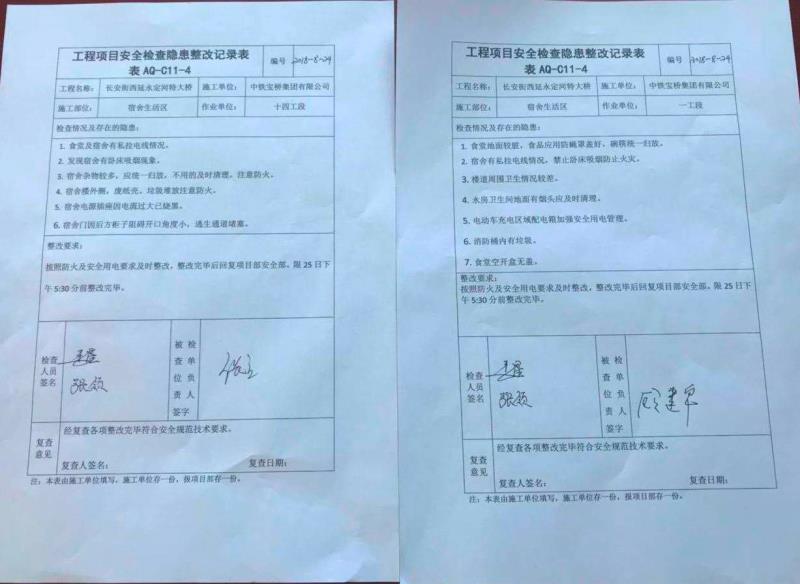 工程项目安全检查隐患整改记录表
表 AQ-C11-4
编号 2018-8-24
工程名称: 长安街西延永定河特大桥 施工单位: 中铁宝桥集团有限公司
施工部位: 宿舍生活区 作业单位: 十四工段
检查情况及存在的隐患:
1. 食堂及宿舍有私拉电线情况。
2. 发现宿舍有卧床吸烟现象。
3. 宿舍杂物较多,应统一归放,不用的及时清理。注意防火。
4. 宿舍楼外侧,废纸壳。垃圾堆放注意防火。
5. 宿舍电源插座因电流过大已烧黑。
6. 宿舍门因后方柜子阻碍开口角度小,逃生通道堵塞。
整改要求:
按照防火及安全用电要求及时整改,整改完毕后回复项目部安全部。限 25 日下
午 5:30 分前整改完毕。
检查人员签名
张领
被检查单位负责人签字
复查意见
经复查各项整改完毕符合安全规范技术要求。
复查人签名: 复查日期:
注: 本表由施工单位填写,施工单位存一份,报项目部存一份。
工程项目安全检查隐患整改记录表
表 AQ-C11-4
编号 2018-8-24
工程名称: 长安街西延永定河特大桥 施工单位: 中铁宝桥集团有限公司
施工部位: 宿舍生活区 作业单位: 一工段
检查情况及存在的隐患:
1. 食堂地面较脏,食品应用防蝇罩盖好,碗筷统一归放。
2. 宿舍有私拉电线情况,禁止卧床吸烟防止火灾。
3. 楼道周围卫生情况较差。
4. 水房卫生间地面有烟头应及时清理。
5. 电动车充电区域配电箱加强安全用电管理。
6. 消防桶内有垃圾。
7. 食堂空开盒无盖。
整改要求:
按照防火及安全用电要求及时整改,整改完毕后回复项目部安全部。限 25 日下
午 5:30 分前整改完毕。
检查人员签名
张领
被检查单位负责人签字
顾建军
复查意见
经复查各项整改完毕符合安全规范技术要求。
复查人签名: 复查日期:
注: 本表由施工单位填写,施工单位存一份,报项目部存一份。